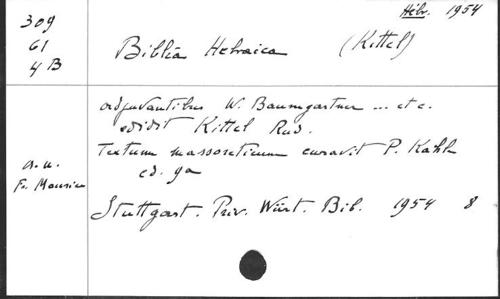 Hébr. 1954
309
61
4 B
Biblia Hebraica (Kittel)
adjuvantibus W. Baumgartner ... etc.
edidit Kittel Rud.
Textum massoreticum curavit P. Kahle
ed. 9a
a. u.
Fr. Maurice
Stuttgart. Priv. Württ. Bib. 1954 8